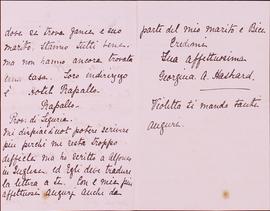 dove si trova Janie e suo
marito. Stanno tutti bene.
ma non hanno ancora trovata
una casa. Loro indirizzo
è Hotel Rapallo
Rapallo.
Riv. di Liguria.
Mi dispiace not potere scrivere
piu perche me resta troppo
difficile ma ho scritto a Alfonso
in Inglese, ed Egli deve tradure
la lettera a te. Con i miei più
affettuosi auguri anche da
parte del mio marito e Bice
Credimi
Sua affettuosima
Georgina A.
Violetta ti manda tanti
auguri.